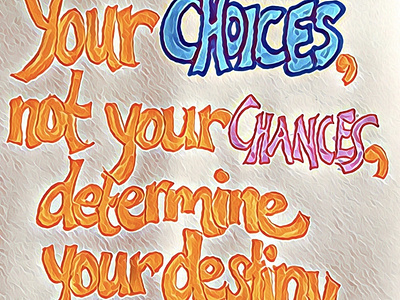 Your CHOICES,
not your CHANCES,
determine
your destiny